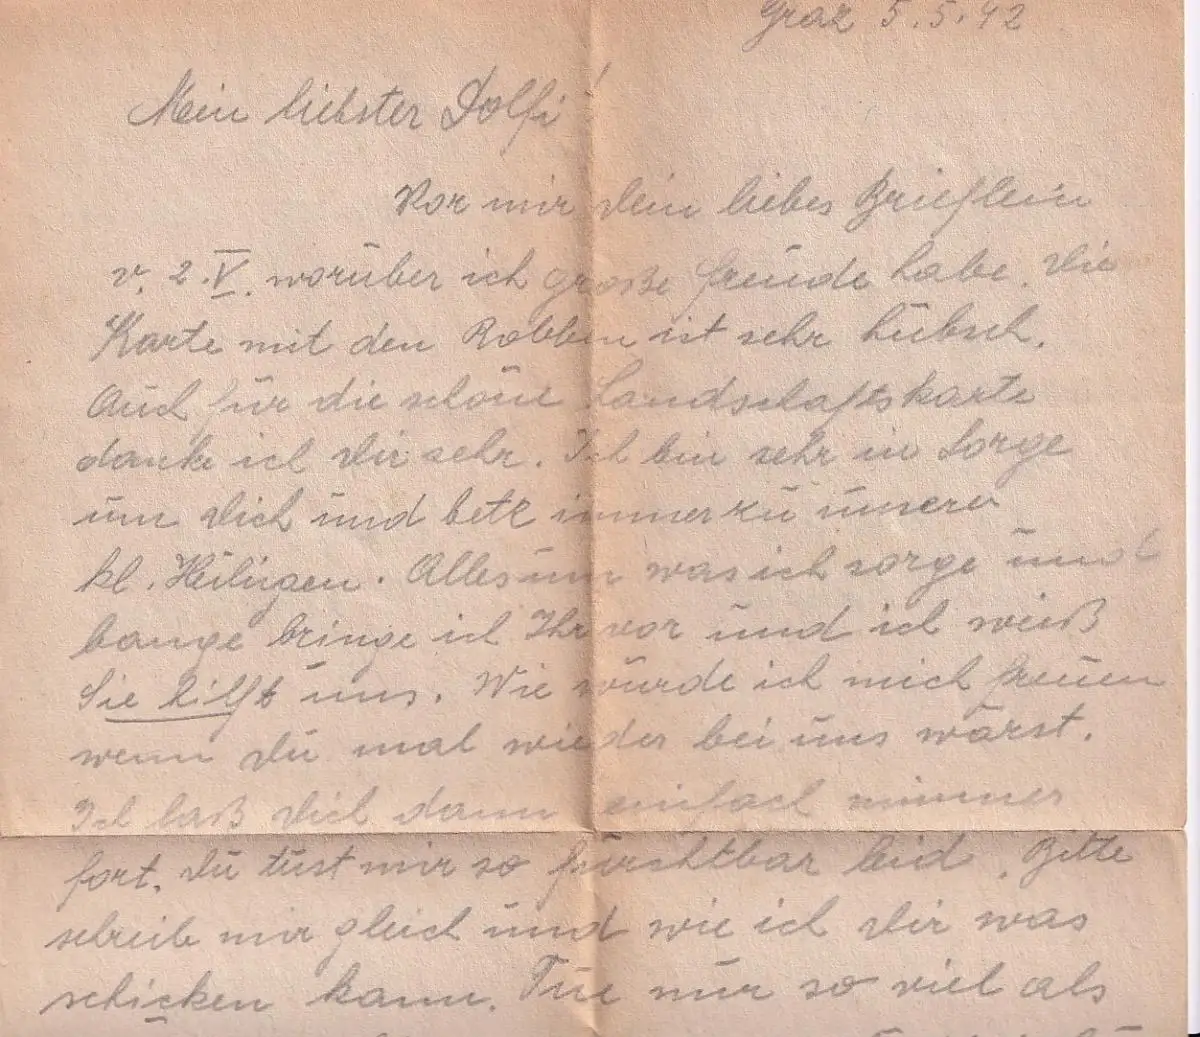 Graz 5.5.42
Mein liebster Dolfi!
Vor mir dein liebes Brieflein
v. 2.V. worüber ich große freude habe. Die
Karte mit den Robben ist sehr hübsch.
Auch für die schöne Landschaftskarte
danke ich Dir sehr. Ich bin sehr in Sorge
um Dich und bete immer zu unserer
kl. Heiligen. Alles um was ich sorge und
bange bringe ich Ihr vor und ich weiß
Sie hilft uns. Wie würde ich mich freuen
wenn Du mal wieder bei uns wärst.
Ich laß Dich dann einfach nimmer
fort. Du tust mir so furchtbar leid. Bitte
schreib mir gleich und wie ich Dir was
schicken kann. Tue nur so viel als